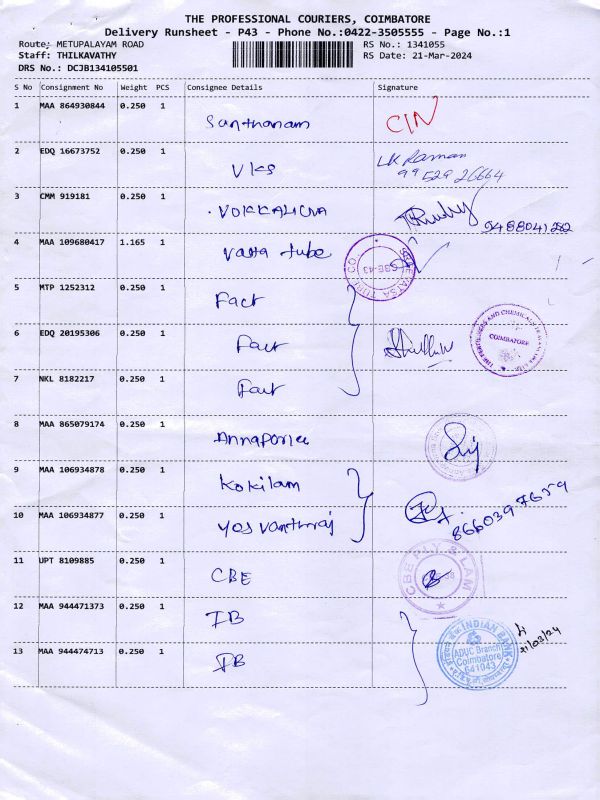 THE PROFESSIONAL COURIERS, COIMBATORE
Delivery Runsheet - P43 - Phone No.:0422-3505555 - Page No.:1
Route: METUPALAYAM ROAD
RS No.: 1341055
Staff: THILKAVATHY
RS Date: 21-Mar-2024
DRS No.: DCJB134105501
S No Consignment No Weight PCS Consignee Details Signature
1 MAA 864930844 0.250 1 Santhanam CIN
2 EDQ 16673752 0.250 1 VKS LK Raman
99529 26664
3 CMM 919181 0.250 1 VOKKALIGNA
9488041282
4 MAA 109680417 1.165 1 Vatta tube
5 MTP 1252312 0.250 1 Fact
6 EDQ 20195306 0.250 1 Fact
COIMBATORE
7 NKL 8182217 0.250 1 Fact
8 MAA 865079174 0.250 1
9 MAA 106934878 0.250 1 Kokilam
10 MAA 106934877 0.250 1 Yos vanthraj
8660397659
11 UPT 8109885 0.250 1 CBE
CBE PLY & LAM
12 MAA 944471373 0.250 1 IB
13 MAA 944474713 0.250 1 IB
INDIAN BANK
ADUC Branch
Coimbatore
641043
21/03/24